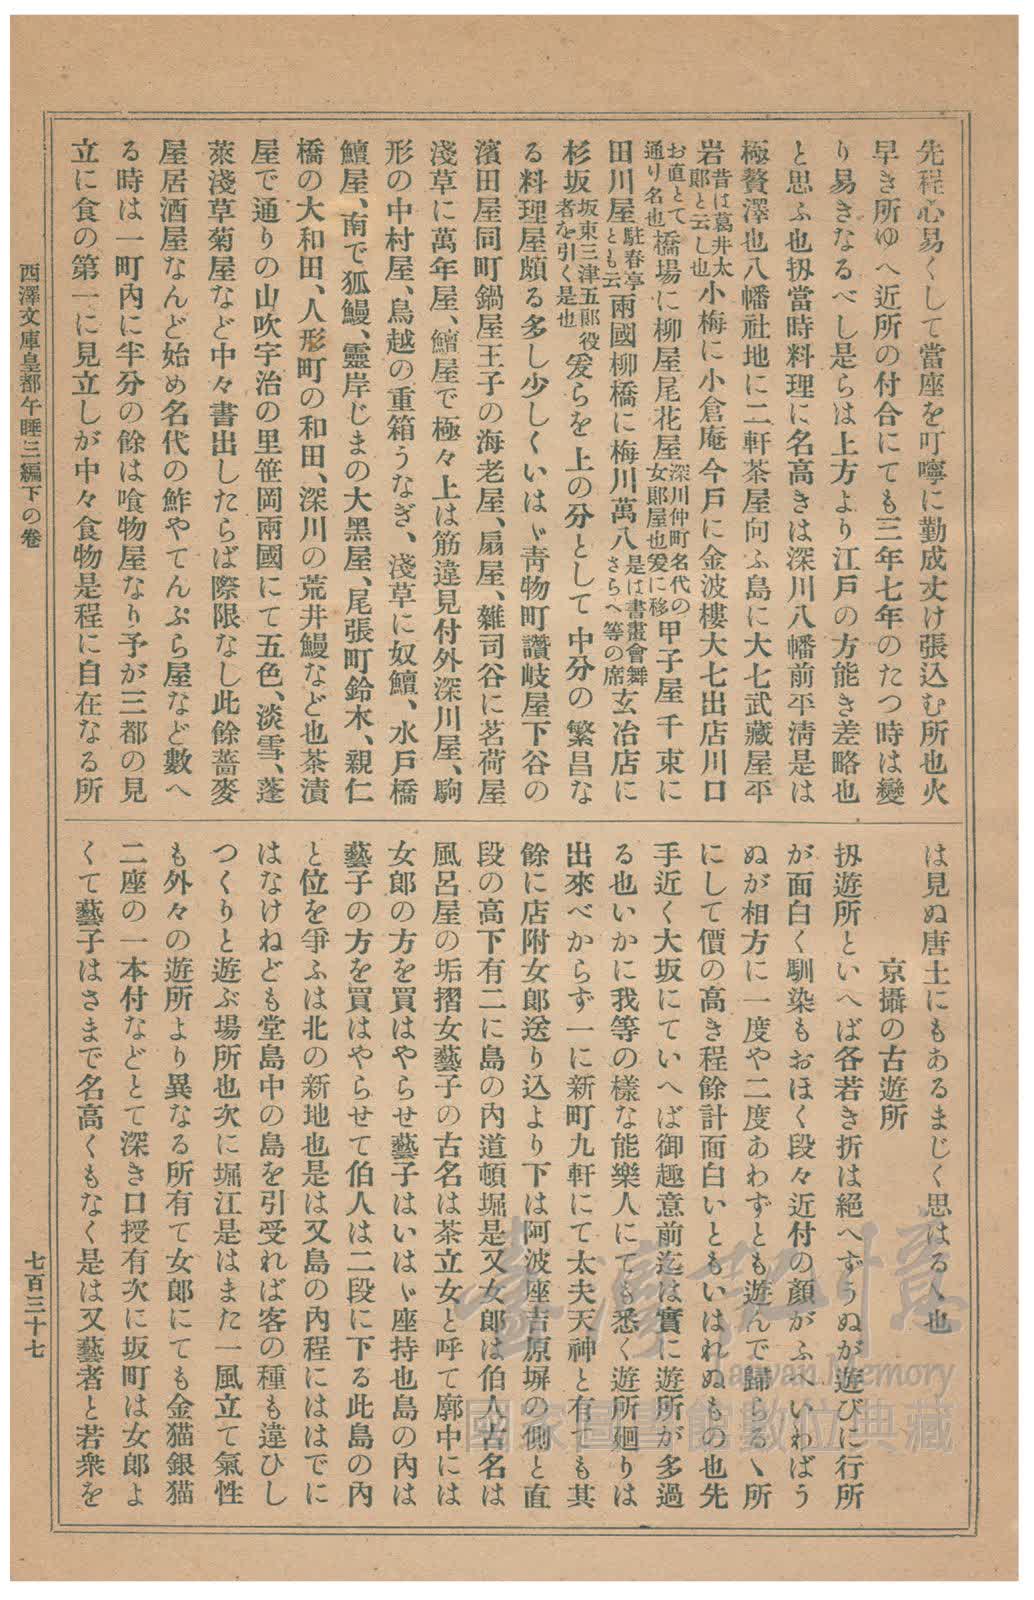 先程心易くして當座を叮嚀に勤成丈け張込む所也火
早き所ゆへ近所の付合にても三年七年のたつ時は變
り易きなるべし是らは上方より江戸の方能き差略也
と思ふ也扨當時料理に名高きは深川八幡前平淸是は
極贅澤也八幡社地に二軒茶屋向ふ島に大七武藏屋平
岩昔は葛井太郞と云し也小梅に小倉庵今戸に金波樓大七出店川口
お直とて通り名也橋場に柳屋尾花屋深川仲町名代の女郞屋也爰に移甲子屋千束に
田川屋駐春亭とも云兩國柳橋に梅川萬八是は書畫會舞さらへ等の席玄冶店に
杉坂坂東三津五郞役者を引く是也爰らを上の分として中分の繁昌な
る料理屋頗る多し少しくいはゞ靑物町讚岐屋下谷の
濱田屋同町鍋屋王子の海老屋、扇屋、雜司谷に茗荷屋
淺草に萬年屋、鱠屋で極々上は筋違見付外深川屋、駒
形の中村屋、鳥越の重箱うなぎ、淺草に奴鱣、水戸橋
鱣屋、南で狐鰻、靈岸じまの大黑屋、尾張町鈴木、親仁
橋の大和田、人形町の和田、深川の荒井鰻など也茶漬
屋で通りの山吹宇治の里笹岡兩國にて五色、淡雪、蓬
萊淺草菊屋など中々書出したらば際限なし此餘蕎麥
屋居酒屋なんど始め名代の鮓やてんぷら屋など數へ
る時は一町內に半分の餘は喰物屋なり予が三都の見
立に食の第一に見立しが中々食物是程に自在なる所
は見ぬ唐土にもあるまじく思はるゝ也
京攝の古遊所
扨遊所といへば各若き折は絕へずうぬが遊びに行所
が面白く馴染もおほく段々近付の顏がふへいわばう
ぬが相方に一度や二度あわずとも遊んで歸らるゝ所
にして價の高き程餘計面白いともいはれぬもの也先
手近く大坂にていへば御趣意前迄は實に遊所が多過
る也いかに我等の樣な能樂人にても悉く遊所廻りは
出來べからず一に新町九軒にて太夫天神と有ても其
餘に店附女郞送り込より下は阿波座吉原塀の側と直
段の高下有二に島の內道頓堀是又女郞は伯人古名は
風呂屋の垢摺女藝子の古名は茶立女と呼て廓中には
女郞の方を買はやらせ藝子はいはゞ座持也島の內は
藝子の方を買はやらせて伯人は二段に下る此島の內
と位を爭ふは北の新地也是は又島の內程にははでに
はなけねども堂島中の島を引受れば客の種も違ひし
つくりと遊ぶ場所也次に堀江是はまた一風立て氣性
も外々の遊所より異なる所有て女郞にても金猫銀猫
二座の一本付などとて深き口授有次に坂町は女郞よ
くて藝子はさまで名高くもなく是は又藝者と若衆を
西澤文庫皇都午睡三編下の卷
七百三十七
臺灣記憶
Taiwan Memory
國家圖書館數位典藏